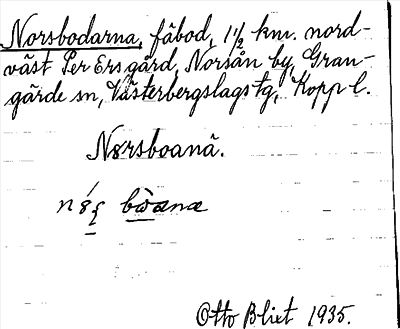 Norsbodarna, fäbod, 1½ km. nord-
väst Per Ers gård, Norsån by, Gran-
gärde sn, Västerbergslags tg, Kopp l.
Nørsboanä.
Otto Blixt 1935.